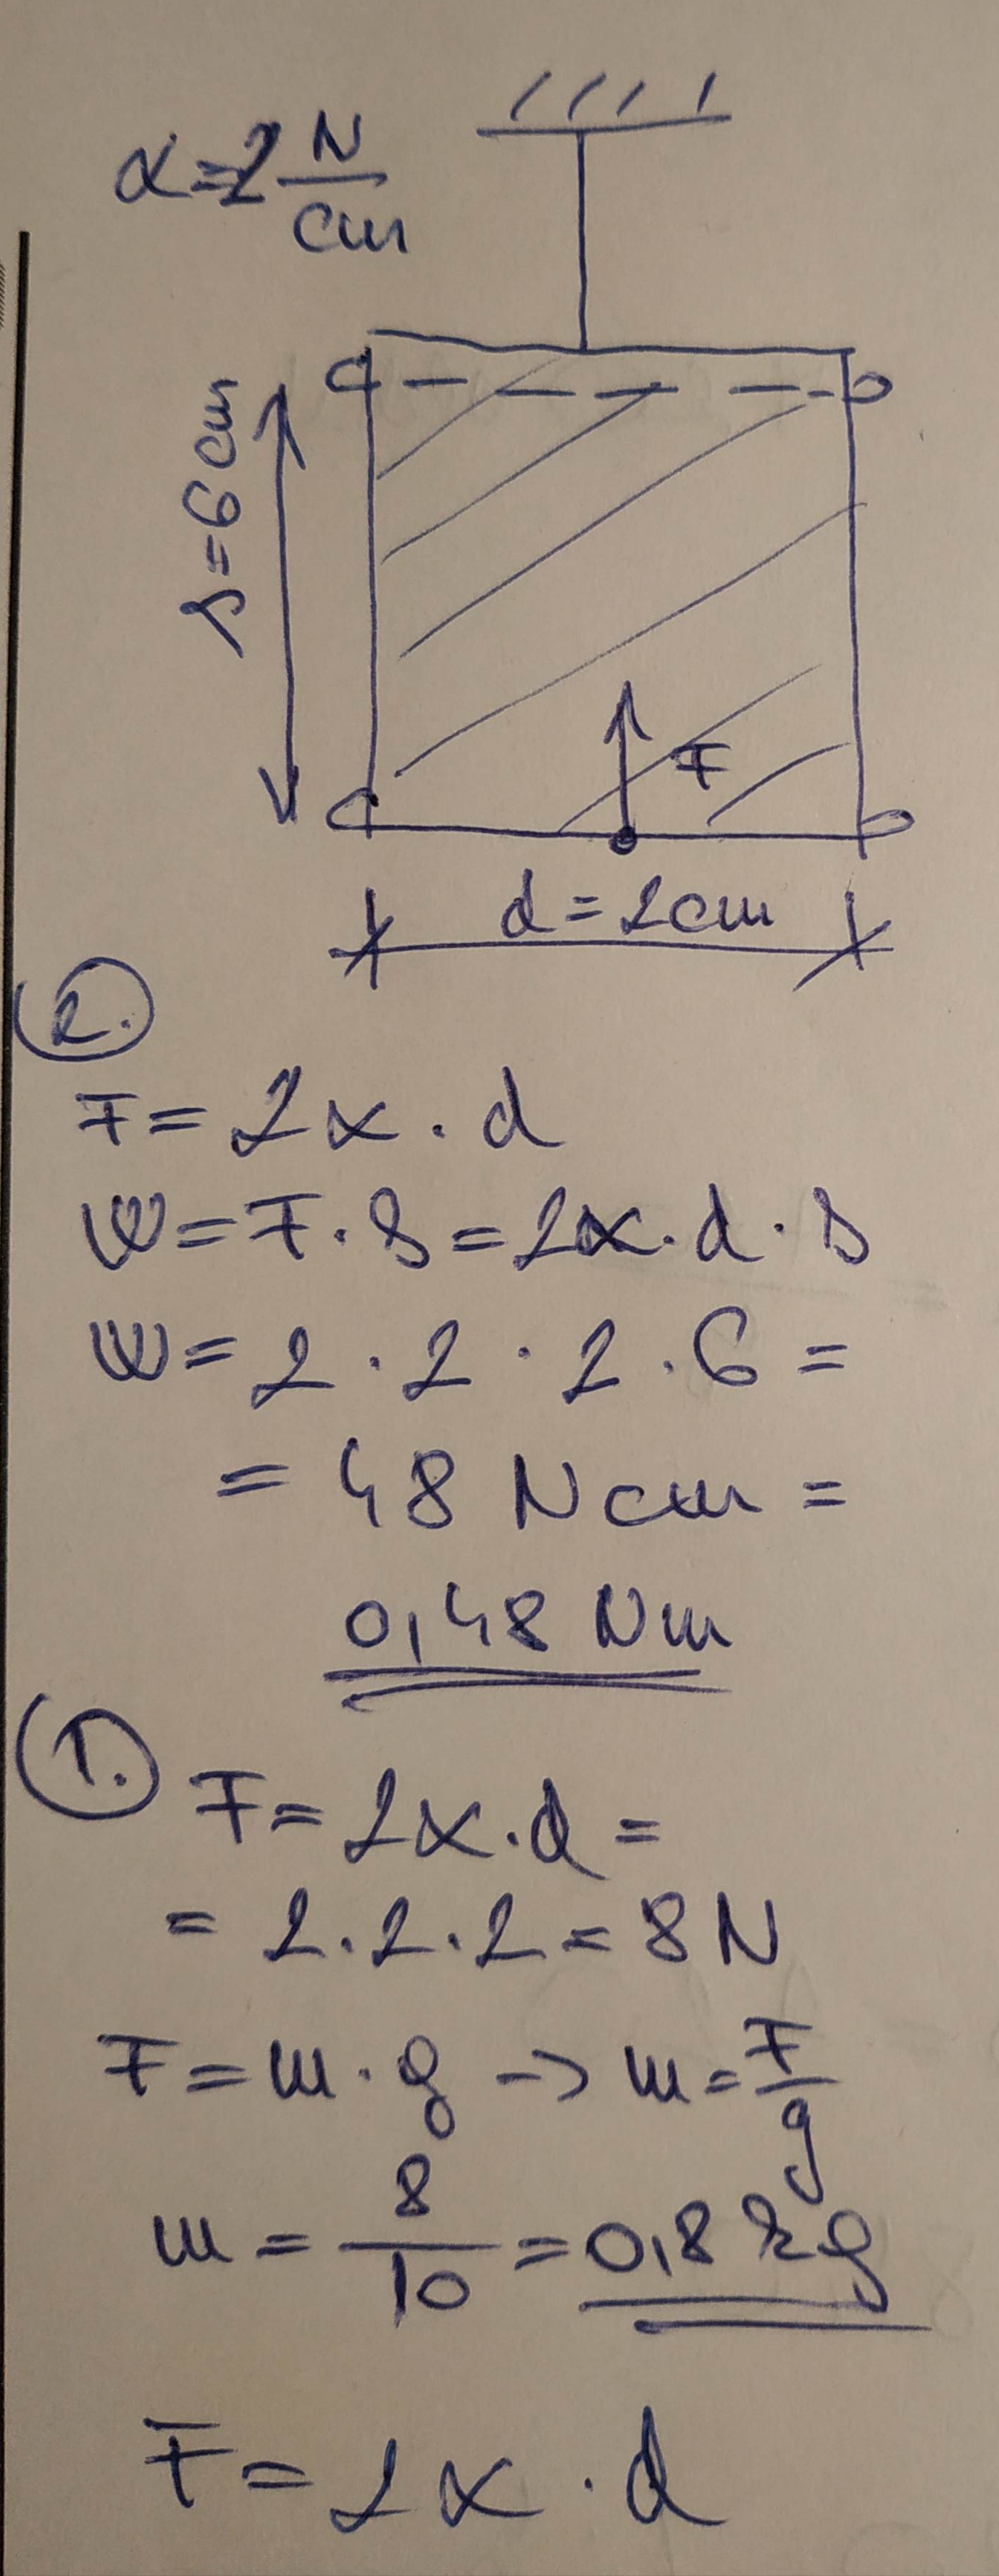 α=2 N/cm
s=6cm
F
d=2cm
2.
F=2α·d
W=F·s=2α·d·s
W=2·2·2·6=
=48 Ncm=
0,48 Nm
1.
F=2α·d=
=2·2·2=8N
F=m·g→m=F/g
m=8/10=0,8kg
F=2α·d